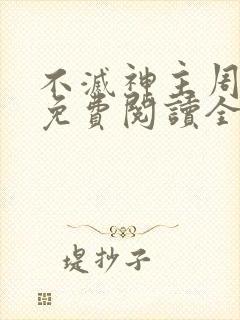 不滅神主周
免費閱讀全
堤抄子